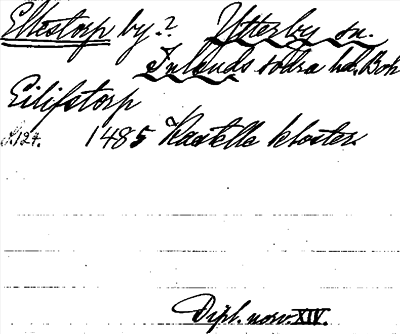 Ellestorp by.? Ytterby sn.
Inlands södra hd. Boh
Eilifstorp
S. 127. 1485 Kastelle kloster.
Dipl. norv. XIV.